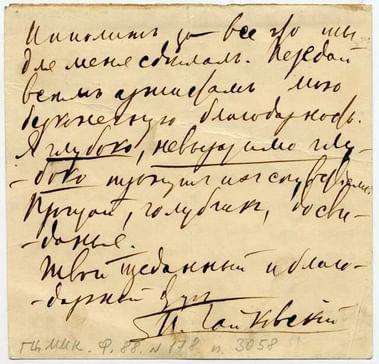 Иполит за все что ты
для меня сделал. Передай
всем артистам мою
бесконечную благодарность.
Я глубоко, невыразимо глу-
-боко тронут их сочувствіем.
Прощай, голубчик, досви-
-данье.
Твой преданный и благо-
-дарный друг
П. Чайковскій
ГЦММК. Ф. 88. № 178. п. 3058